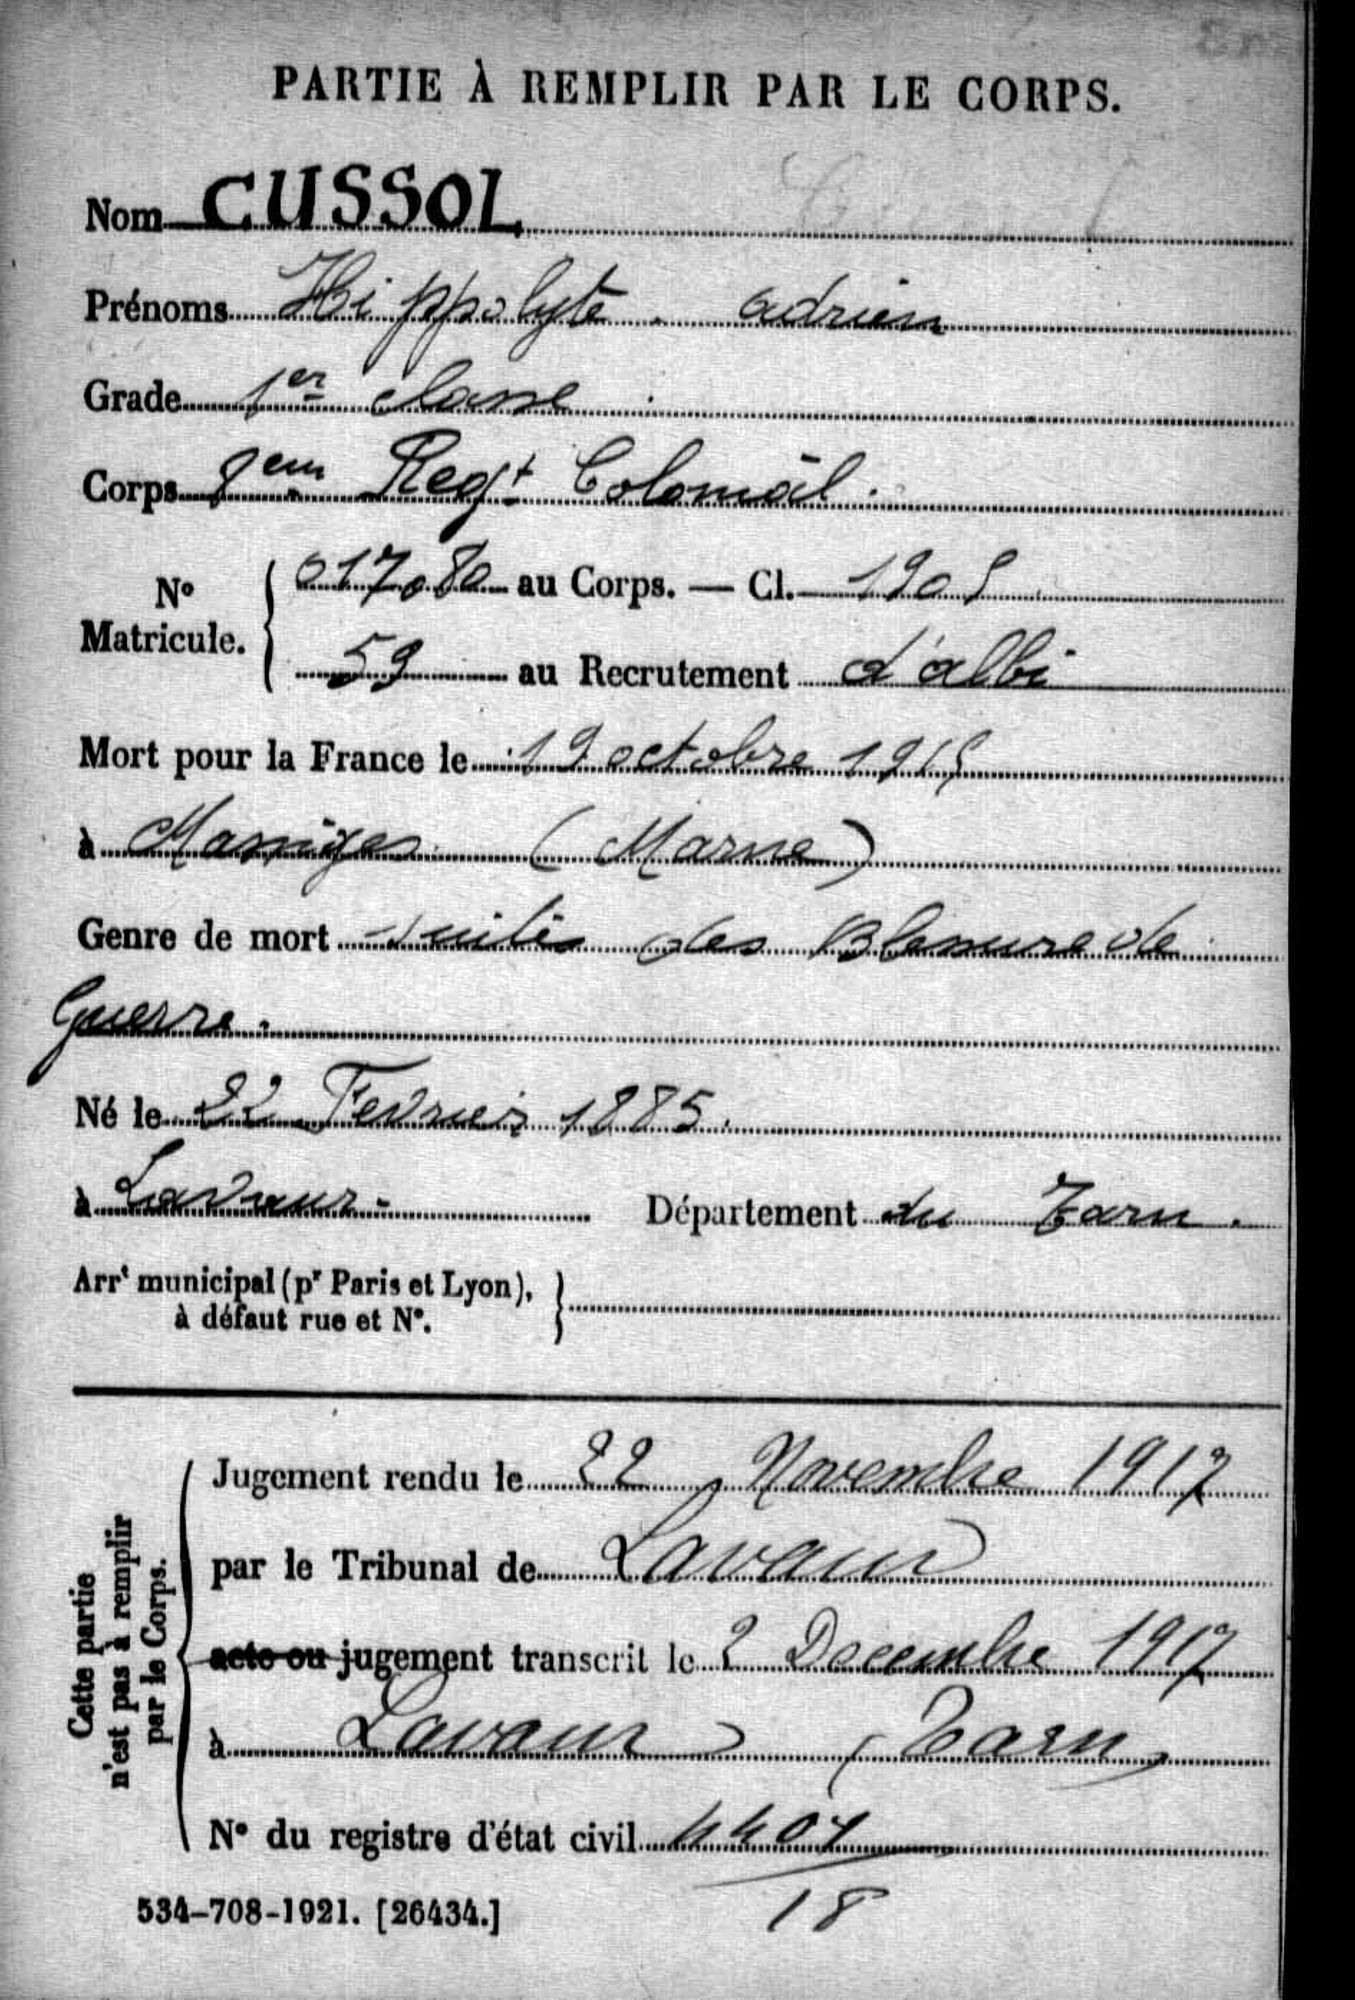 PARTIE À REMPLIR PAR LE CORPS.
Nom CUSSOL
Prénoms Hippolyte. adrien
Grade 1er classe.
Corps 8em Regt Colonial.
No Matricule. 017080 au Corps. — Cl. 1905
59 au Recrutement d'albi
Mort pour la France le 19 octobre 1915
à Massiges (Marne)
Genre de mort Suites des Blessure de
Guerre.
Né le 22 Fevrier 1885.
à Lavaur - Département du Tarn.
Arrt municipal (pr Paris et Lyon),
à défaut rue et No.
Cette partie
n'est pas à remplir
par le Corps.
Jugement rendu le 22 Novembre 1917
par le Tribunal de Lavaur
acte ou jugement transcrit le 2 Decembre 1917
à Lavaur (Tarn)
No du registre d'état civil
18
534-708-1921. [26434.]